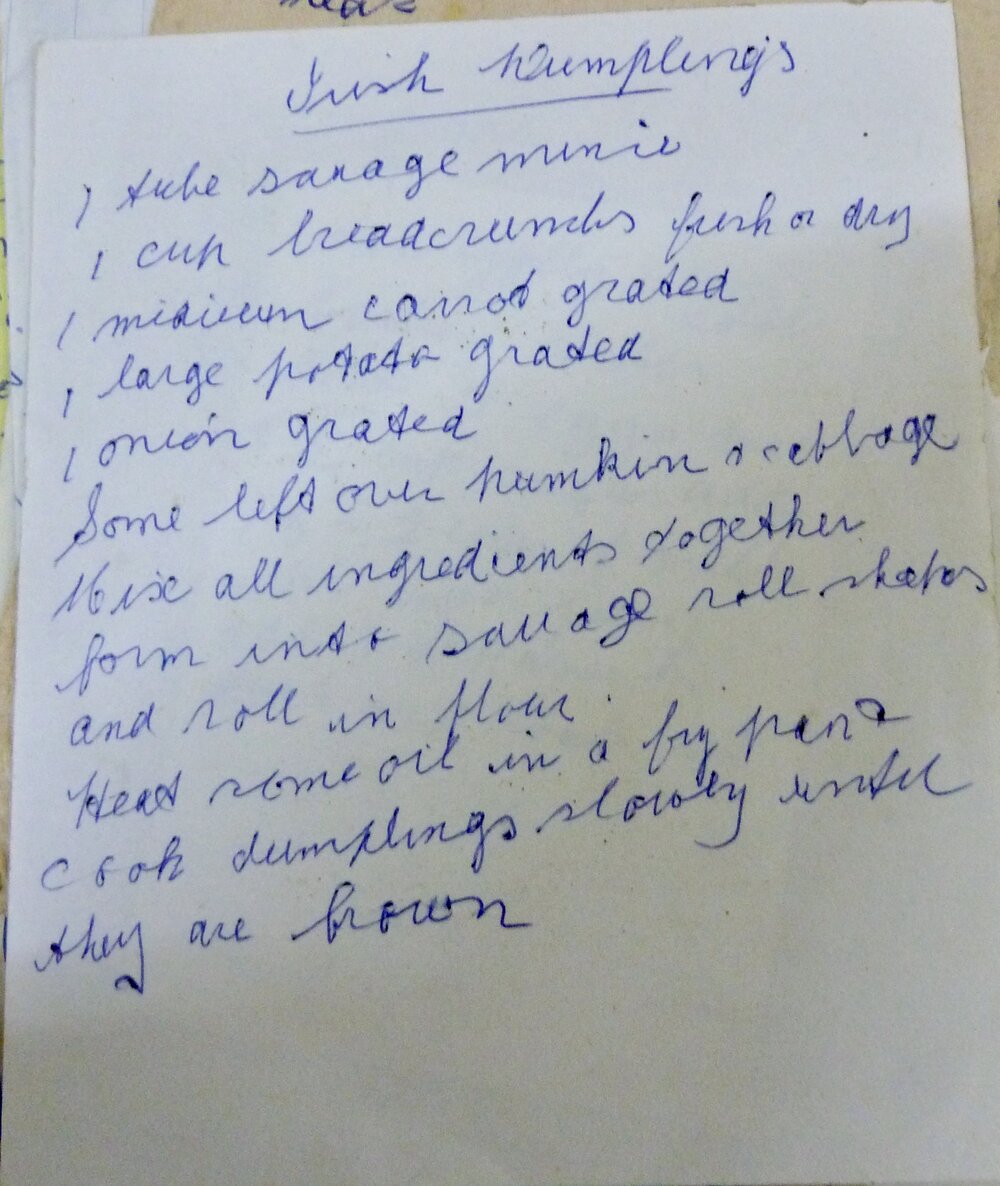 Irish Dumplings
1 tube sausage mince
1 cup breadcrumbs fresh or dry
1 medium carrot grated
1 large potato grated
1 onion grated
Some left over pumkin & cabbage
Mix all ingredients together
form into sausage roll shapes
and roll in flour.
Heat some oil in a fry pan &
cook dumplings slowly until
they are brown